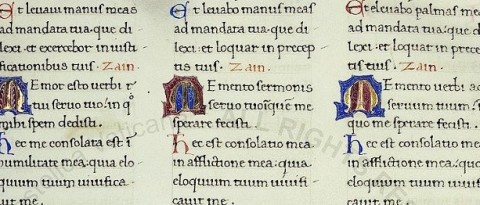 Et leuaui manus meas
ad mandata tua·que di
lexi·et exercebor in iusti
ficationibus tuis. Zain.
Memor esto uerbi
tui seruo tuo/in q̄
mihi spem dedisti.
Hec me consolata est ī
humilitate mea:quia elo
quium tuum uiuifica
uit me.
Et leuabo manus meas
ad mandata tua·que di
lexi:et loquar in precep
tis tuis. Zain.
Memento sermonis
seruo me
sperare fecisti.
Hec est consolatio mea
in afflictione mea:quia
eloquium tuum uiuifi
cauit me.
Et eleuabo palmas me
ad mandata tua:que d
lexi·et loquar in prece
tis tuis. Zain.
Memento uerbi ad
seruum tuum:
quo me sperare fecisti.
Hec est consolatio mea
in afflictione mea:quia
eloquium tuum uiuifi
cauit me.
ALL RIGHTS